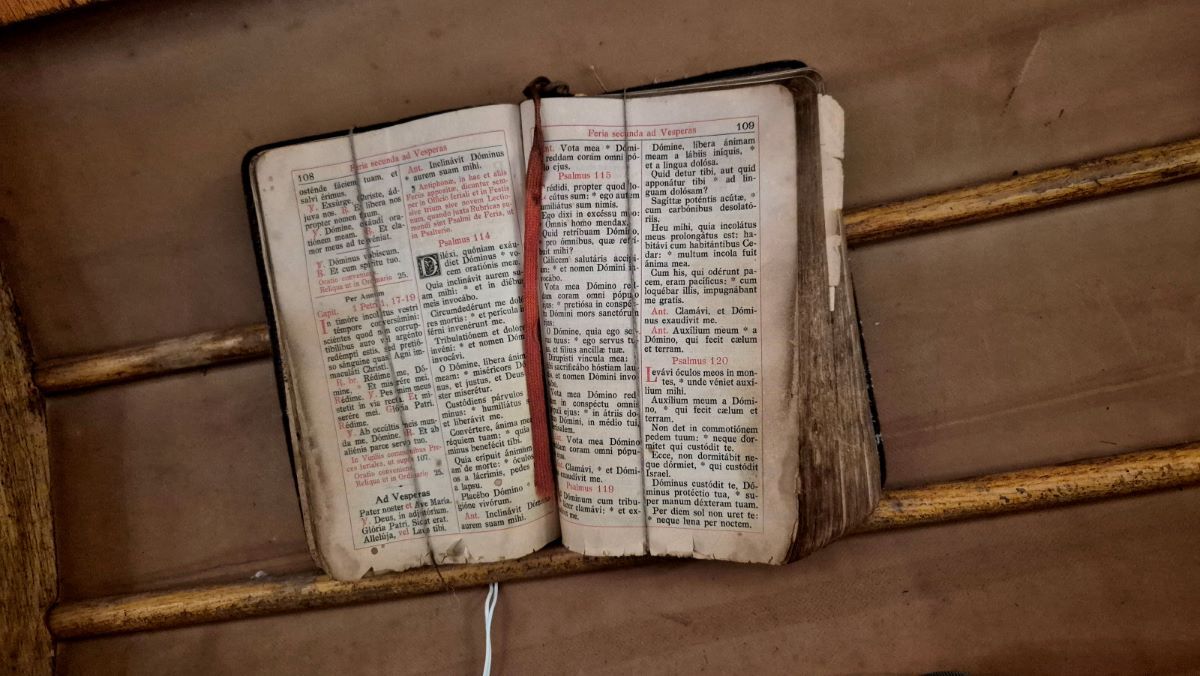 108
Feria secunda ad Vesperas
osténde fáciem tuam, et
salvi érimus.
℣. Exsúrge, Christe, ád-
juva nos. ℟. Et líbera nos
propter nomen tuum.
℣. Dómine, exáudi ora-
tiónem meam. ℟. Et cla-
mor meus ad te véniat.
℣. Dóminus vobíscum.
℟. Et cum spíritu tuo.
Oratio conveniens 25.
Reliqua ut in Ordinario
Per Annum
Capit. 1 Petri 1, 17-19
In timóre incolátus vestri
témpore conversámini:
sciéntes quod non corrup-
tibílibus auro vel argénto
redémpti estis, sed pretió-
so sánguine quasi Agni im-
maculáti Christi.
℟. br. Rédime me, Dó-
mine, * Et miserére mei.
Rédime. ℣. Pes meus
stetit in via recta. Et mi-
serére mei. Glória Patri.
Rédime.
℣. Ab occúltis meis mun-
da me, Dómine. ℟. Et ab
aliénis parce servo tuo.
ces feriales, ut supra 107.
Oratio conveniens 25.
Reliqua ut in Ordinario
Ad Vesperas
Pater noster et Ave María.
℣. Deus, in adjutórium.
Glória Patri. Sicut erat.
Allelúja, vel Laus tibi.
Ant. Inclinávit Dóminus
* aurem suam mihi.
¶ Antiphonæ, in hac et aliis
Feriis appositæ, dicuntur sem-
per in Officio feriali et in Festis
sive trium sive novem Lectio-
num, quando juxta Rubricas su-
mendi sint Psalmi de Feria, ut
in Psalterio.
Psalmus 114
Diléxi, quóniam exáu-
diet Dóminus * vo-
cem oratiónis meæ.
Quia inclinávit aurem su-
am mihi: * et in diébus
meis invocábo.
Circumdedérunt me doló-
res mortis: * et perícula
férni invenérunt me.
Tribulatiónem et dolórem
invéni: * et nomen Dómini
invocávi.
O Dómine, líbera ánimam
meam: * miséricors Dómi-
nus, et justus, et Deus
ster miserétur.
Custódiens párvulos
minus: * humiliátus
et liberávit me.
Convértere, ánima mea
réquiem tuam: * quia
minus benefécit tibi.
Quia erípuit ánimam
am de morte: * óculos
os a lácrimis, pedes
a lapsu.
Placébo Dómino
gióne vivórum.
Ant. Inclinávit Dóminus
aurem suam mihi.
Feria secunda ad Vesperas
109
Ant. Vota mea * Dómino
reddam coram omni pópu-
lo ejus.
Psalmus 115
Crédidi, propter quod lo-
cútus sum: * ego autem
humiliátus sum nimis.
Ego dixi in excéssu meo:
* Omnis homo mendax.
Quid retríbuam Dómino,
* pro ómnibus, quæ retrí-
buit mihi?
Cálicem salutáris accípi-
am: * et nomen Dómini in-
vocábo.
Vota mea Dómino red-
dam coram omni pópulo
ejus: * pretiósa in conspéctu
Dómini mors sanctórum
ejus.
O Dómine, quia ego ser-
vus tuus: * ego servus tuus,
et fílius ancíllæ tuæ.
Dirupísti víncula mea: *
tibi sacrificábo hóstiam lau-
dis, et nomen Dómini invo-
cábo.
Vota mea Dómino red-
dam in conspéctu omnis
pópuli ejus: * in átriis do-
mus Dómini, in médio tui,
Jerúsalem.
Ant. Vota mea Dómino
reddam coram omni pópu-
lo
Ant. Clamávi, * et Dómi-
nus exaudívit me.
Psalmus 119
Ad Dóminum cum tribu-
lárer clamávi: * et ex-
audívit me.
Dómine, líbera ánimam
meam a lábiis iníquis, *
et a lingua dolósa.
Quid detur tibi, aut quid
apponátur tibi * ad lin-
guam dolósam?
Sagíttæ poténtis acútæ, *
cum carbónibus desolató-
riis.
Heu mihi, quia incolátus
meus prolongátus est: ha-
bitávi cum habitántibus Ce-
dar: * multum íncola fuit
ánima mea.
Cum his, qui odérunt pa-
cem, eram pacíficus: * cum
loquébar illis, impugnábant
me gratis.
Ant. Clamávi, et Dómi-
nus exaudívit me.
Ant. Auxílium meum * a
Dómino, qui fecit cælum
et terram.
Psalmus 120
Levávi óculos meos in mon-
tes, * unde véniet auxí-
lium mihi.
Auxílium meum a Dómi-
no, * qui fecit cælum et
terram.
Non det in commotiónem
pedem tuum: * neque dor-
mítet qui custódit te.
Ecce, non dormitábit ne-
que dórmiet, * qui custódit
Israel.
Dóminus custódit te, Dó-
minus protéctio tua, * su-
per manum déxteram tuam.
Per diem sol non uret te:
* neque luna per noctem.